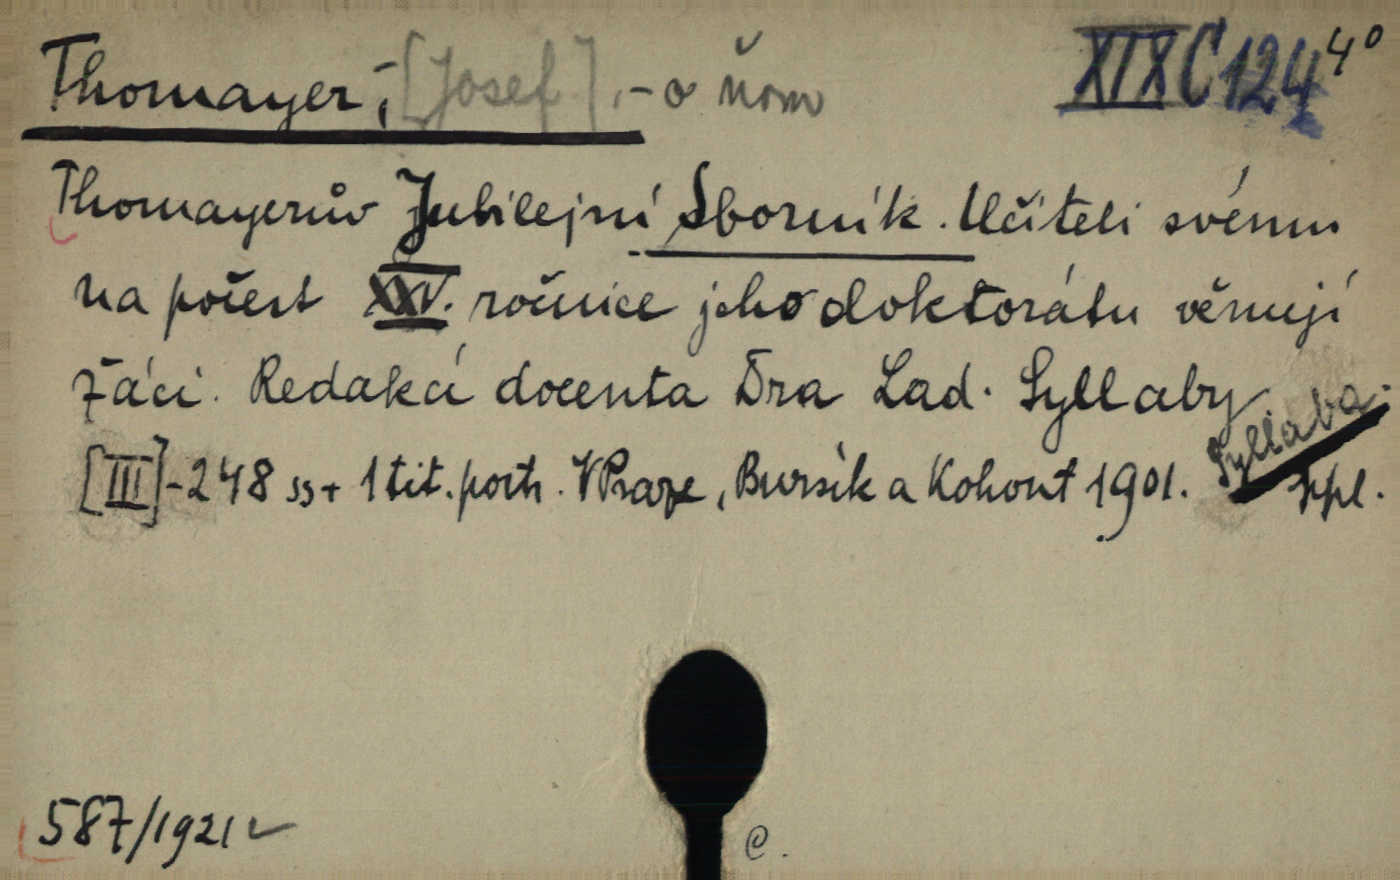 Thomayer, [Josef]. - o ňom XIX C 124 4°
Thomayerův Jubilejní Sborník. Učiteli svému
na počest XXV. ročnice jeho doktorátu věnují
žáci. Redakcí docenta Dra Lad. Syllaby. Syllaba.
[III]-248 ss + 1 tit. portr. V Praze, Bursík a Kohout 1901. ppl.
587/1921
C.